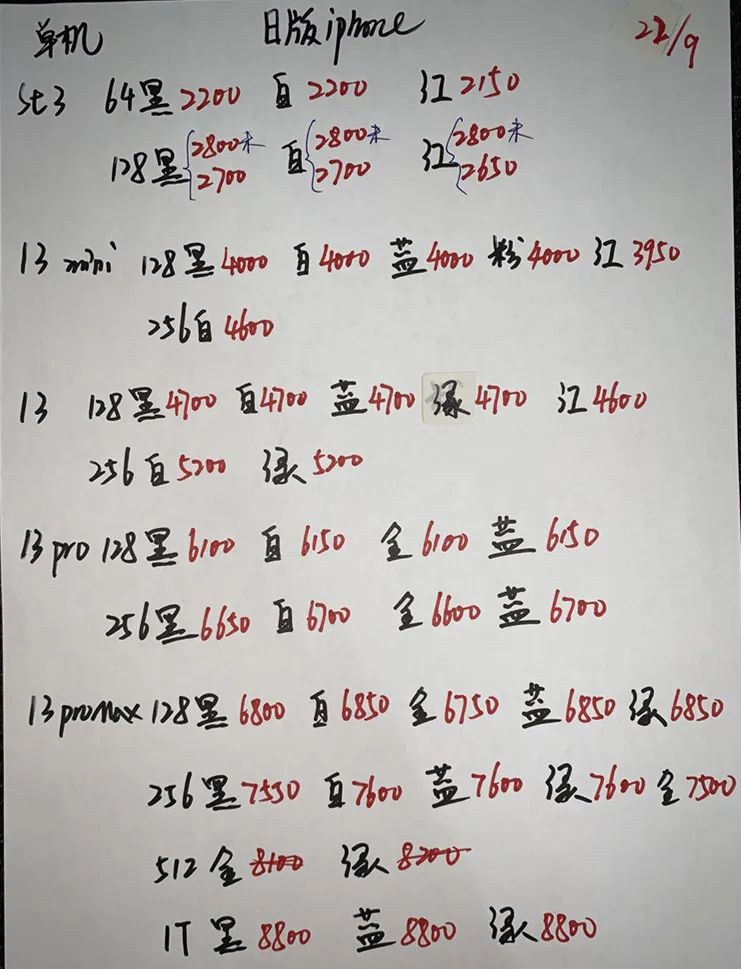 单机 日版iphone 22/9
SE3 64黑2200 白2200 红2150
128黑{2800未 2700 白{2800未 2700 红{2800未 2650
13 mini 128黑4000 白4000 蓝4000 粉4000 红3950
256白4600
13 128黑4700 白4700 蓝4700 绿4700 红4600
256白5200 绿5200
13 pro 128黑6100 白6150 金6100 蓝6150
256黑6650 白6700 金6600 蓝6700
13 promax 128黑6800 白6850 金6750 蓝6850 绿6850
256黑7550 白7600 蓝7600 绿7600 金7500
512金8100 绿8200
1T 黑8800 蓝8800 绿8800